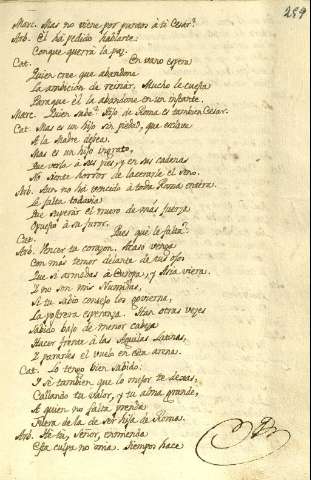 259
Marc. Mas no viene por puntos á ti Cesar?
Arb. El há pedido hablarte:
Conque querrá la paz.
Cat. En vano espera
Quien cree que abandone
La ambicion de reinar. Mucho le cuesta
Para que él la abandone en un instante.
Marc. Quien sabe? Hijo de Roma es tambien Cesar.
Cat. Mas es un hijo sin piedad, que esclava
A la Madre desea.
Mas es un hijo ingrato,
Que verla á sus pies, y en sus cadenas
No siente horror de lacerarle el seno.
Arb. Aun no há vencido á toda Roma entera.
Le falta todavia
Que superar el muro de más fuerza
Opuesto á su furor.
Cat. Pues qué le falta?
Arb. Vencer tu corazon. Acaso venga
Con más temor delante de tus ojos
Que si armadas á Europa, y Asia viera.
Y no son mis Numidas,
Si tu sabio consejo los govierna,
La postrera esperanza. Han otras vezes
Sabido bajo de menor cabeza
Hacer frente á las Aguilas Latinas,
Y pararles el vuelo en esta arena.
Cat. Lo tengo bien sabido:
Y sé tambien que lo mejor te dexas,
Callando tu valor, y tu alma grande,
A quien no falta prenda
Fuera de la de ser hija de Roma.
Arb. Mas tú, Señor, enmienda
Esta culpa no mia. Siempre hace